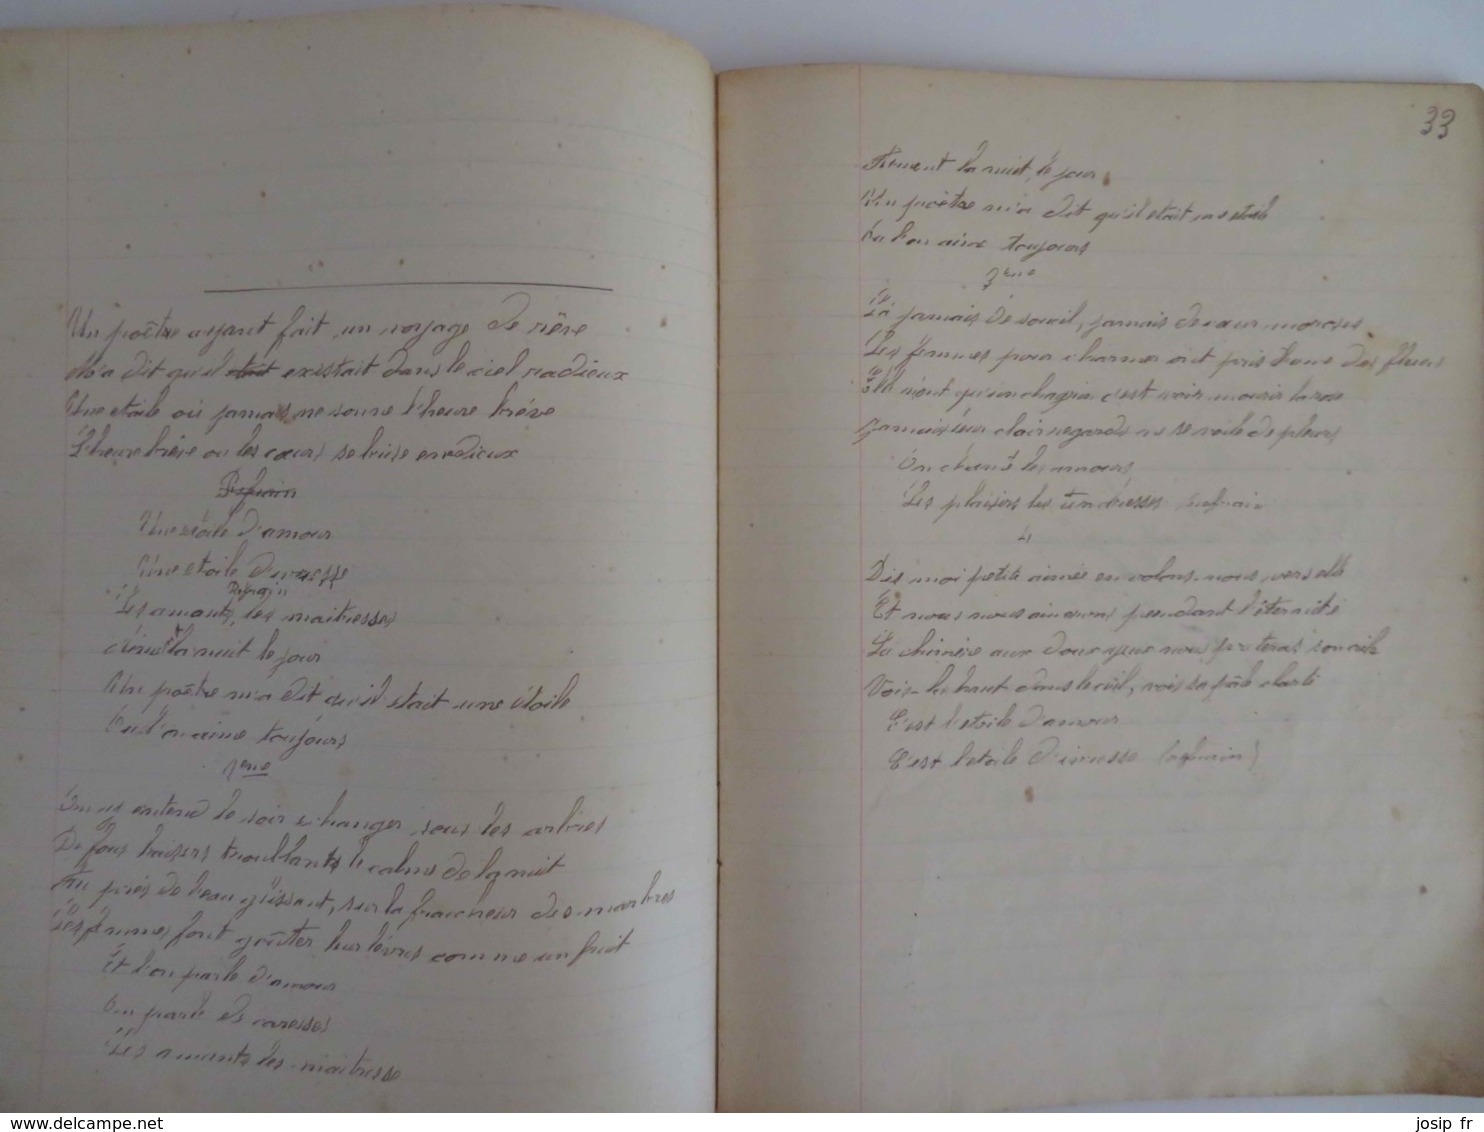 Un poêtre ayant fait un voyage de rêve
M'a dit qu'il était existait dans le ciel radieux
Une etoile où jamais ne sonne l'heure brève
L'heure brève ou les cœurs se brise en adieux
Refrain
Une etoile d'amour
Une etoile d'ivresse
Refrain
Les amants, les maitresses
la nuit le jour
Un poêtre m'a dit qu'il etait une étoile
Ou l'on aime toujours
2eme
On y entend le soir echanger sous les arbres
De fous baisers troublants le calme de la nuit
Au près de l'eau glissant, sur la fraicheur des marbres
Les femmes font goûter leur lèvres comme un fruit
Et l'on parle d'amour
On parle de caresses
Les amants les maitresse
33
la nuit, le jour
Un poêtre m'a dit qu'il etait une etoile
Ou l'on aime toujours
3eme
Là jamais de souçil, jamais de cœur moroses
Les femmes pour charmer ont pris l'ame des fleurs
Et n'ont qu'un chagrin c'est voir mourir la rose
Jamais leur clair regards ne se voile de pleurs
On chante les amours
Les plaisirs les tendresses refrain
4
Dis moi petite aimée envolons-nous vers elle
Et nous nous aimerons pendant l'éternité
La chimère aux doux yeux nous preteras son aile
Vois-la haut dans le ciel, vois sa pâle clarté
C'est l'etoile d'amour
C'est l'etoile d'ivresse (refrain)
www.delcampe.net
josip_fr